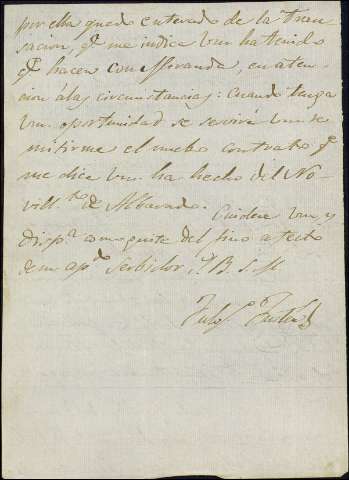 por ella quedo enterado de la Tran-
sacion, q.e me indica Vm ha tenido
q.e hacer con Miranda, en aten-
cion á las circunstancias: Cuando tenga
Vm. oportunidad se servirá Vm re-
mitirme el nuebo contrato q.e
me dice Vm. ha hecho del No-
vill.to de Albarado. Cuidese Vm, y
disp.a como guste del fino afecto
de su ap.do Serbidor, Q. B. S. M